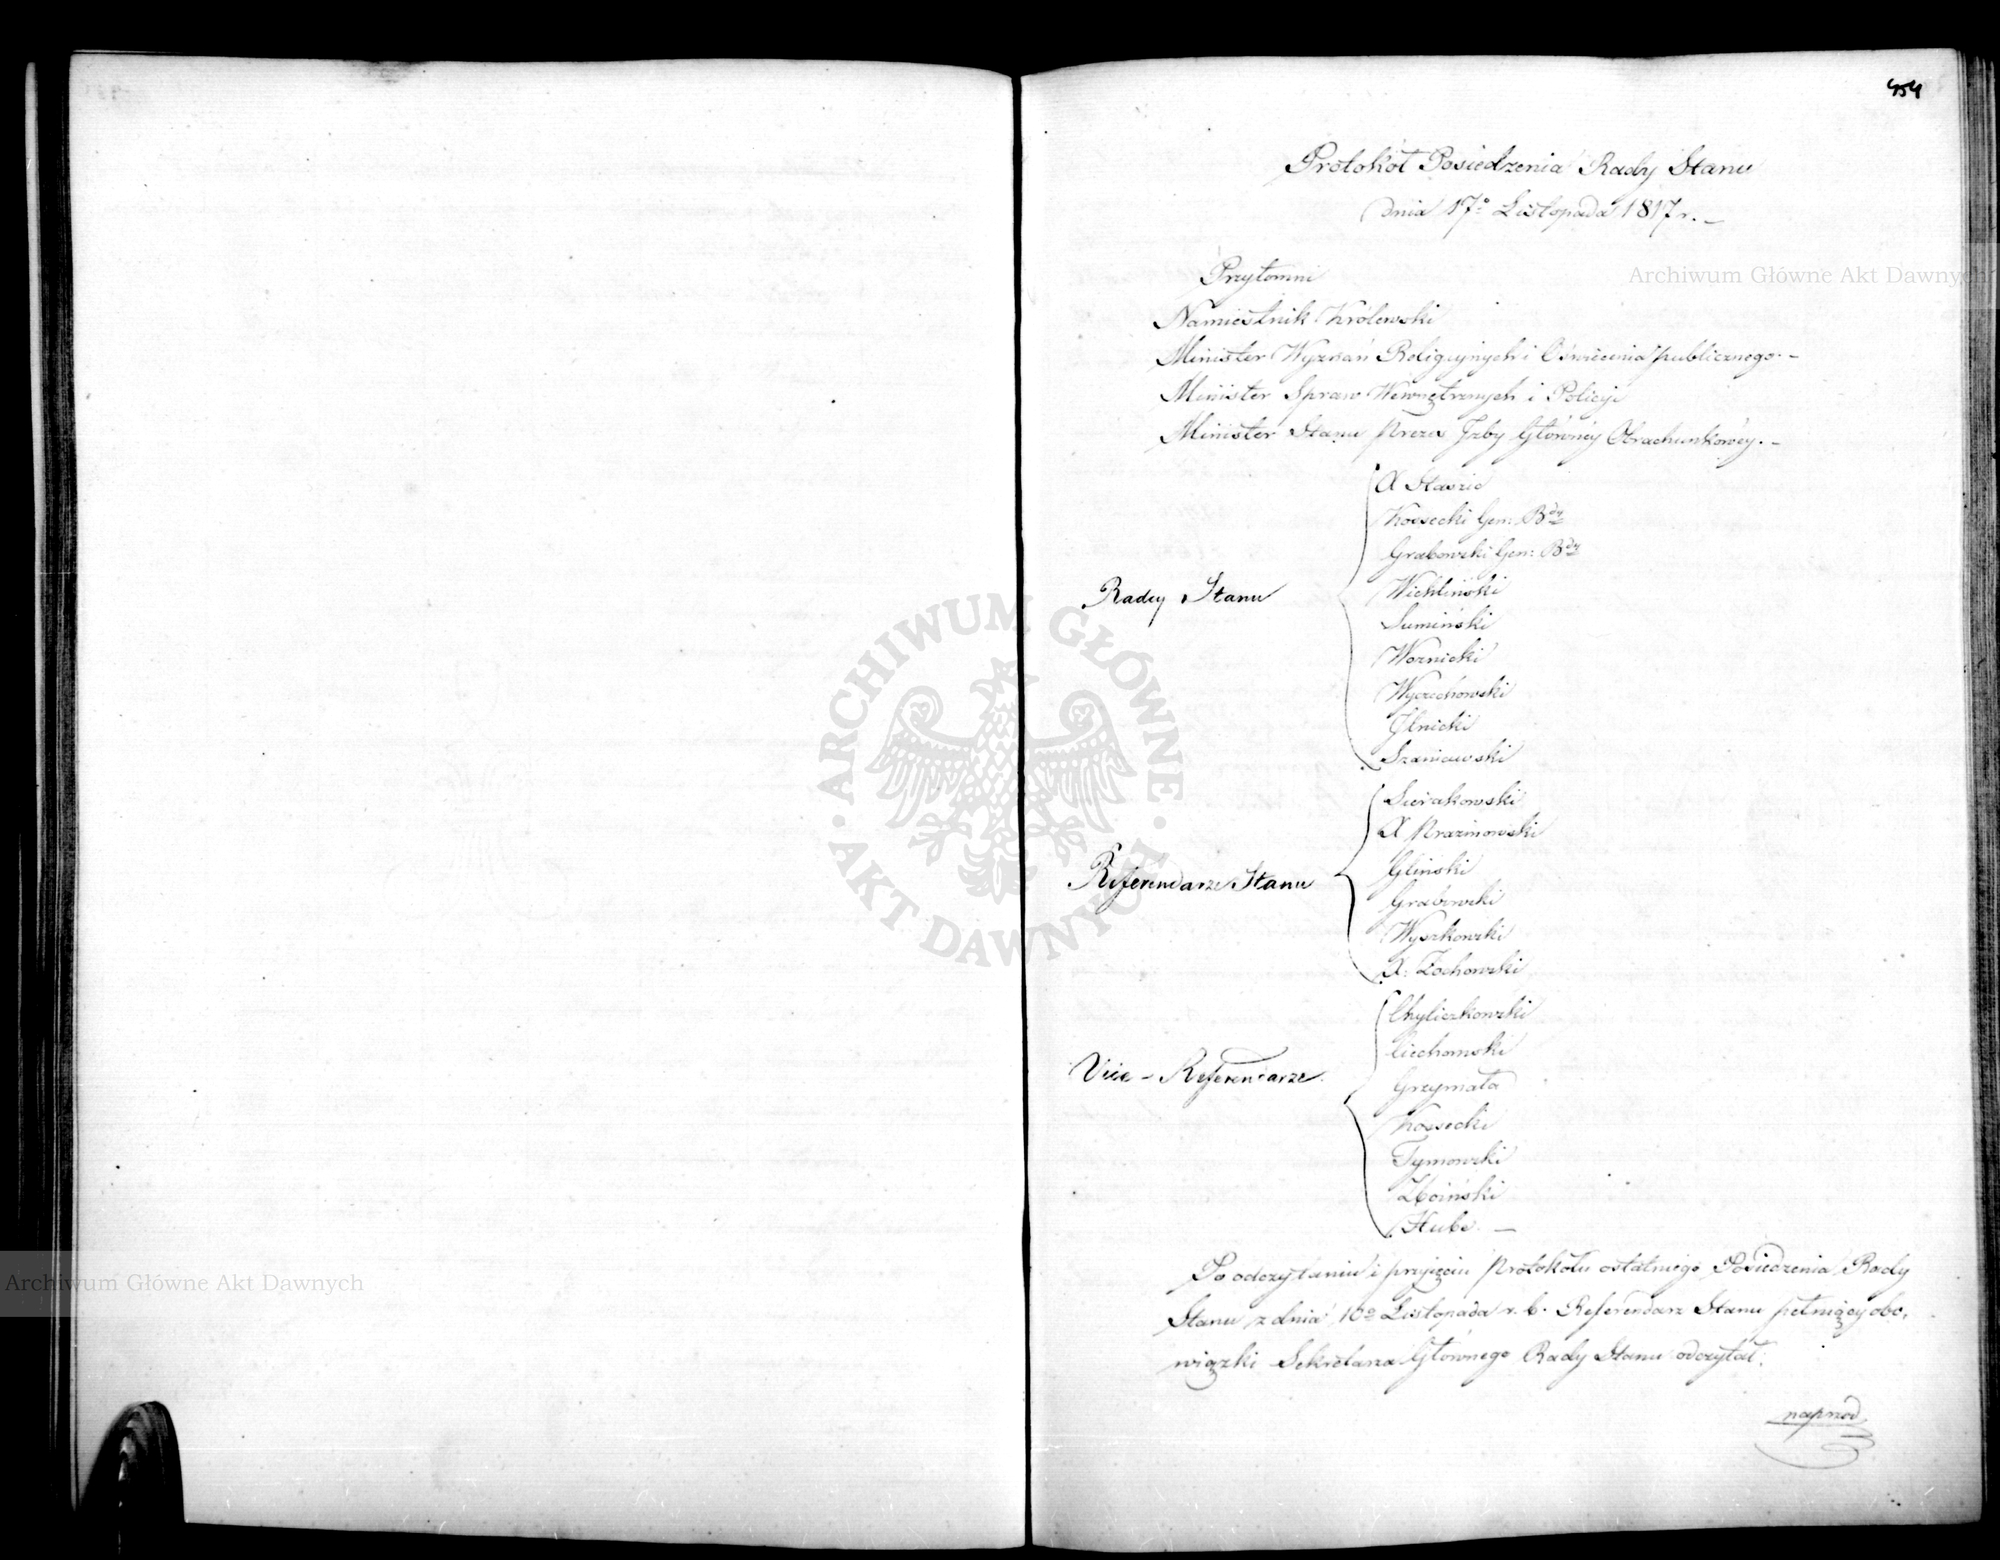 454
Protokół Posiedzenia Rady Stanu
dnia 17º Listopada 1817 r. –
Przytomni
Namiestnik Królewski
Minister Wyznań Religijnych i Oświecenia publicznego. –
Minister Spraw Wewnętrznych i Policyi
Minister Stanu Prezes Izby Główney Obrachunkowey. –
Radcy Stanu
X Staszic
Kossecki Gen: Bdy
Grabowski Gen: Bdy
Wichliński
Sumiński
Woznicki
Wyczechowski
Ilnicki
Szaniawski
Referendarze Stanu
Sierakowski
X Prazmowski
Gliński
Grabowski
Wyszkowski
X. Żochowski
Vice – Referendarze
Chyliczkowski
Ciechomski
Grzymała
Kossecki
Tymowski
Zboiński
Hube. –
Po odczytaniu i przyjęciu Protokółu ostatniego Posiedzenia Rady
Stanu z dnia 10º Listopada r. b. Referendarz Stanu pełniący obo,
wiązki Sekretarza Głównego Rady Stanu odczytał:
naprzod
Archiwum Główne Akt Dawnych
Archiwum Główne Akt Dawnych
ARCHIWUM GŁÓWNE AKT DAWNYCH